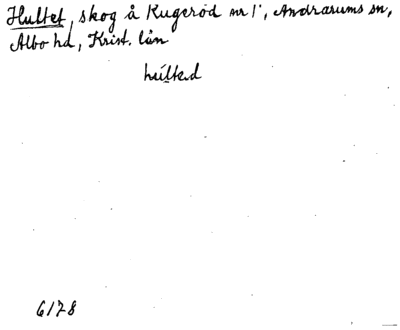 Hultet, skog å Kugeröd nr 1, Andrarums sn,
Albo hd, Krist. län
húlted
6/7 8